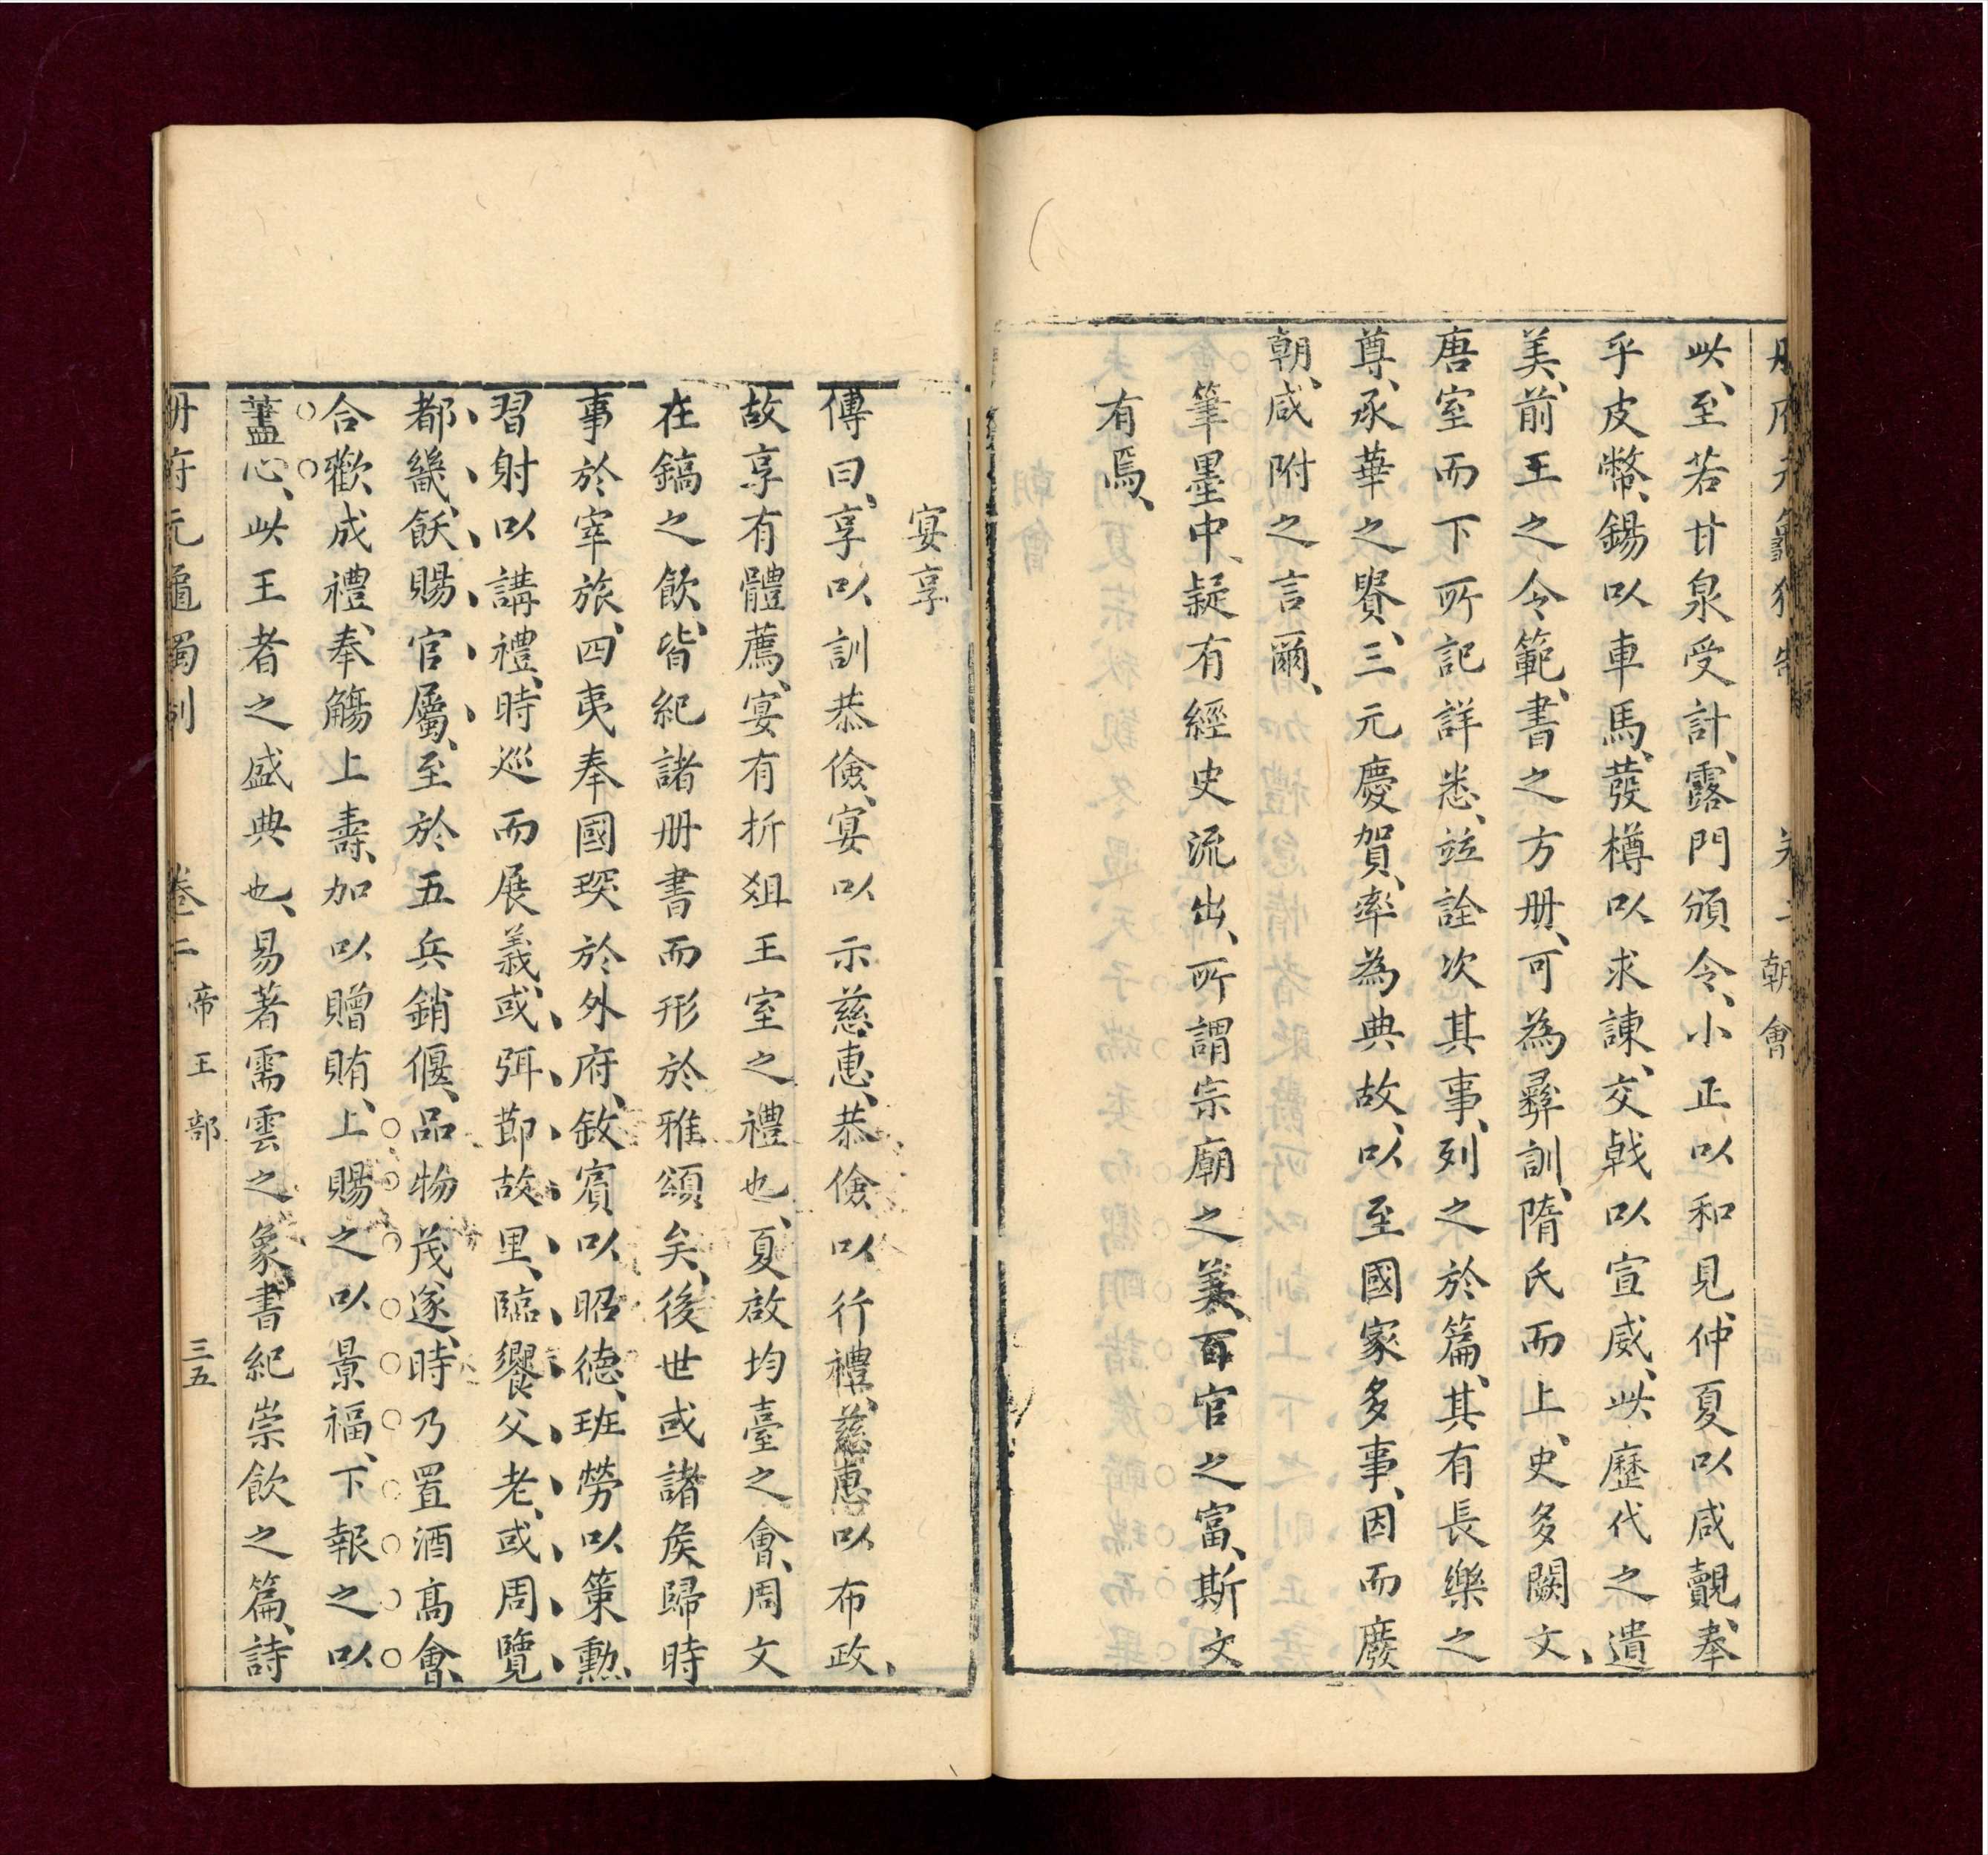 朝會
此、至若甘泉受計、露門頒令、小正以和見、仲夏以咸覿、奉
乎皮幣、錫以車馬、發樽以求諫、交戟以宣威、此歷代之遺
美、前王之令範、書之方册、可為彝訓、隋氏而上、史多闕文、
唐室而下所記詳悉、竝詮次其事、列之於篇、其有長樂之
尊、承華之賢、三元慶賀、率為典故、以至國家多事、因而廢
朝、咸附之言爾、
筆墨中、疑有經史流出、所謂宗廟之美、百官之富、斯文
有焉、
宴享
傳曰、享以訓恭儉、宴以示慈惠、恭儉以行禮、慈惠以布政、
故享有體薦、宴有折俎王室之禮也、夏啟均臺之會、周文
在鎬之飲、皆紀諸册書而形於雅頌矣、後世或諸矦歸時
事於宰旅、四夷奉國琛於外府、敘賓以昭德、班勞以策勲、
習射以講禮、時巡而展義、或、弭節故里、臨饗父老、或周覽
都畿、飫賜官屬、至於五兵銷偃、品物茂遂、時乃置酒高會、
合歡成禮、奉觴上壽、加以贈賄、上賜之以景福、下報之以
藎心、此王者之盛典也、易著需雲之象、書紀崇飲之篇、詩
册府元龜獨制 卷二 帝王部 三五